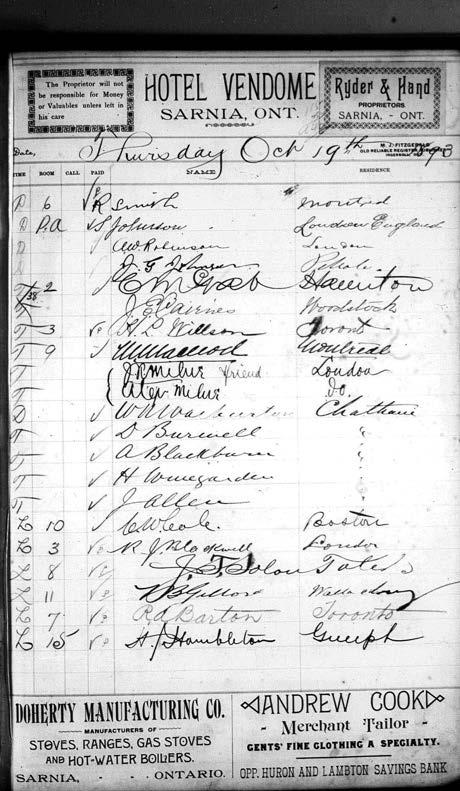 The Proprietor will not
be responsible for Money
or Valuables unless left in
his care
HOTEL VENDOME
SARNIA, ONT.
Ryder & Hand
PROPRIETORS
SARNIA, - ONT.
M. J. FITZGERALD
OLD RELIABLE REGISTER
INGERSOLL
Date, Thursday Oct 19th 93
TIME ROOM CALL PAID NAME RESIDENCE
D 6 R Smith Montreal
D P.a S Johnson London England
D A W Robinson London
D J. G. Johnson
T 2 Hamilton
T 38 J. E. Cairnes Woodstock
T 3 A L Willson Toronto
T 9 Macleod Montreal
T J R Milne friend London
T Alex Milne Do.
D W Chatham
T D Burwell "
T A Blackburn "
T H Winegarden "
T J Allen "
L 10 C W Cole Boston
L 3 R. J. Blackwell London
L 8 J. T. Toledo
L 11
L 7 R A Barton Toronto
L 15 A J Hambleton Guelph
DOHERTY MANUFACTURING CO.
MANUFACTURERS OF
STOVES, RANGES, GAS STOVES
AND HOT-WATER BOILERS.
SARNIA, - - ONTARIO.
ANDREW COOK
- Merchant Tailor -
GENTS' FINE CLOTHING A SPECIALTY.
OPP. HURON AND LAMBTON SAVINGS BANK